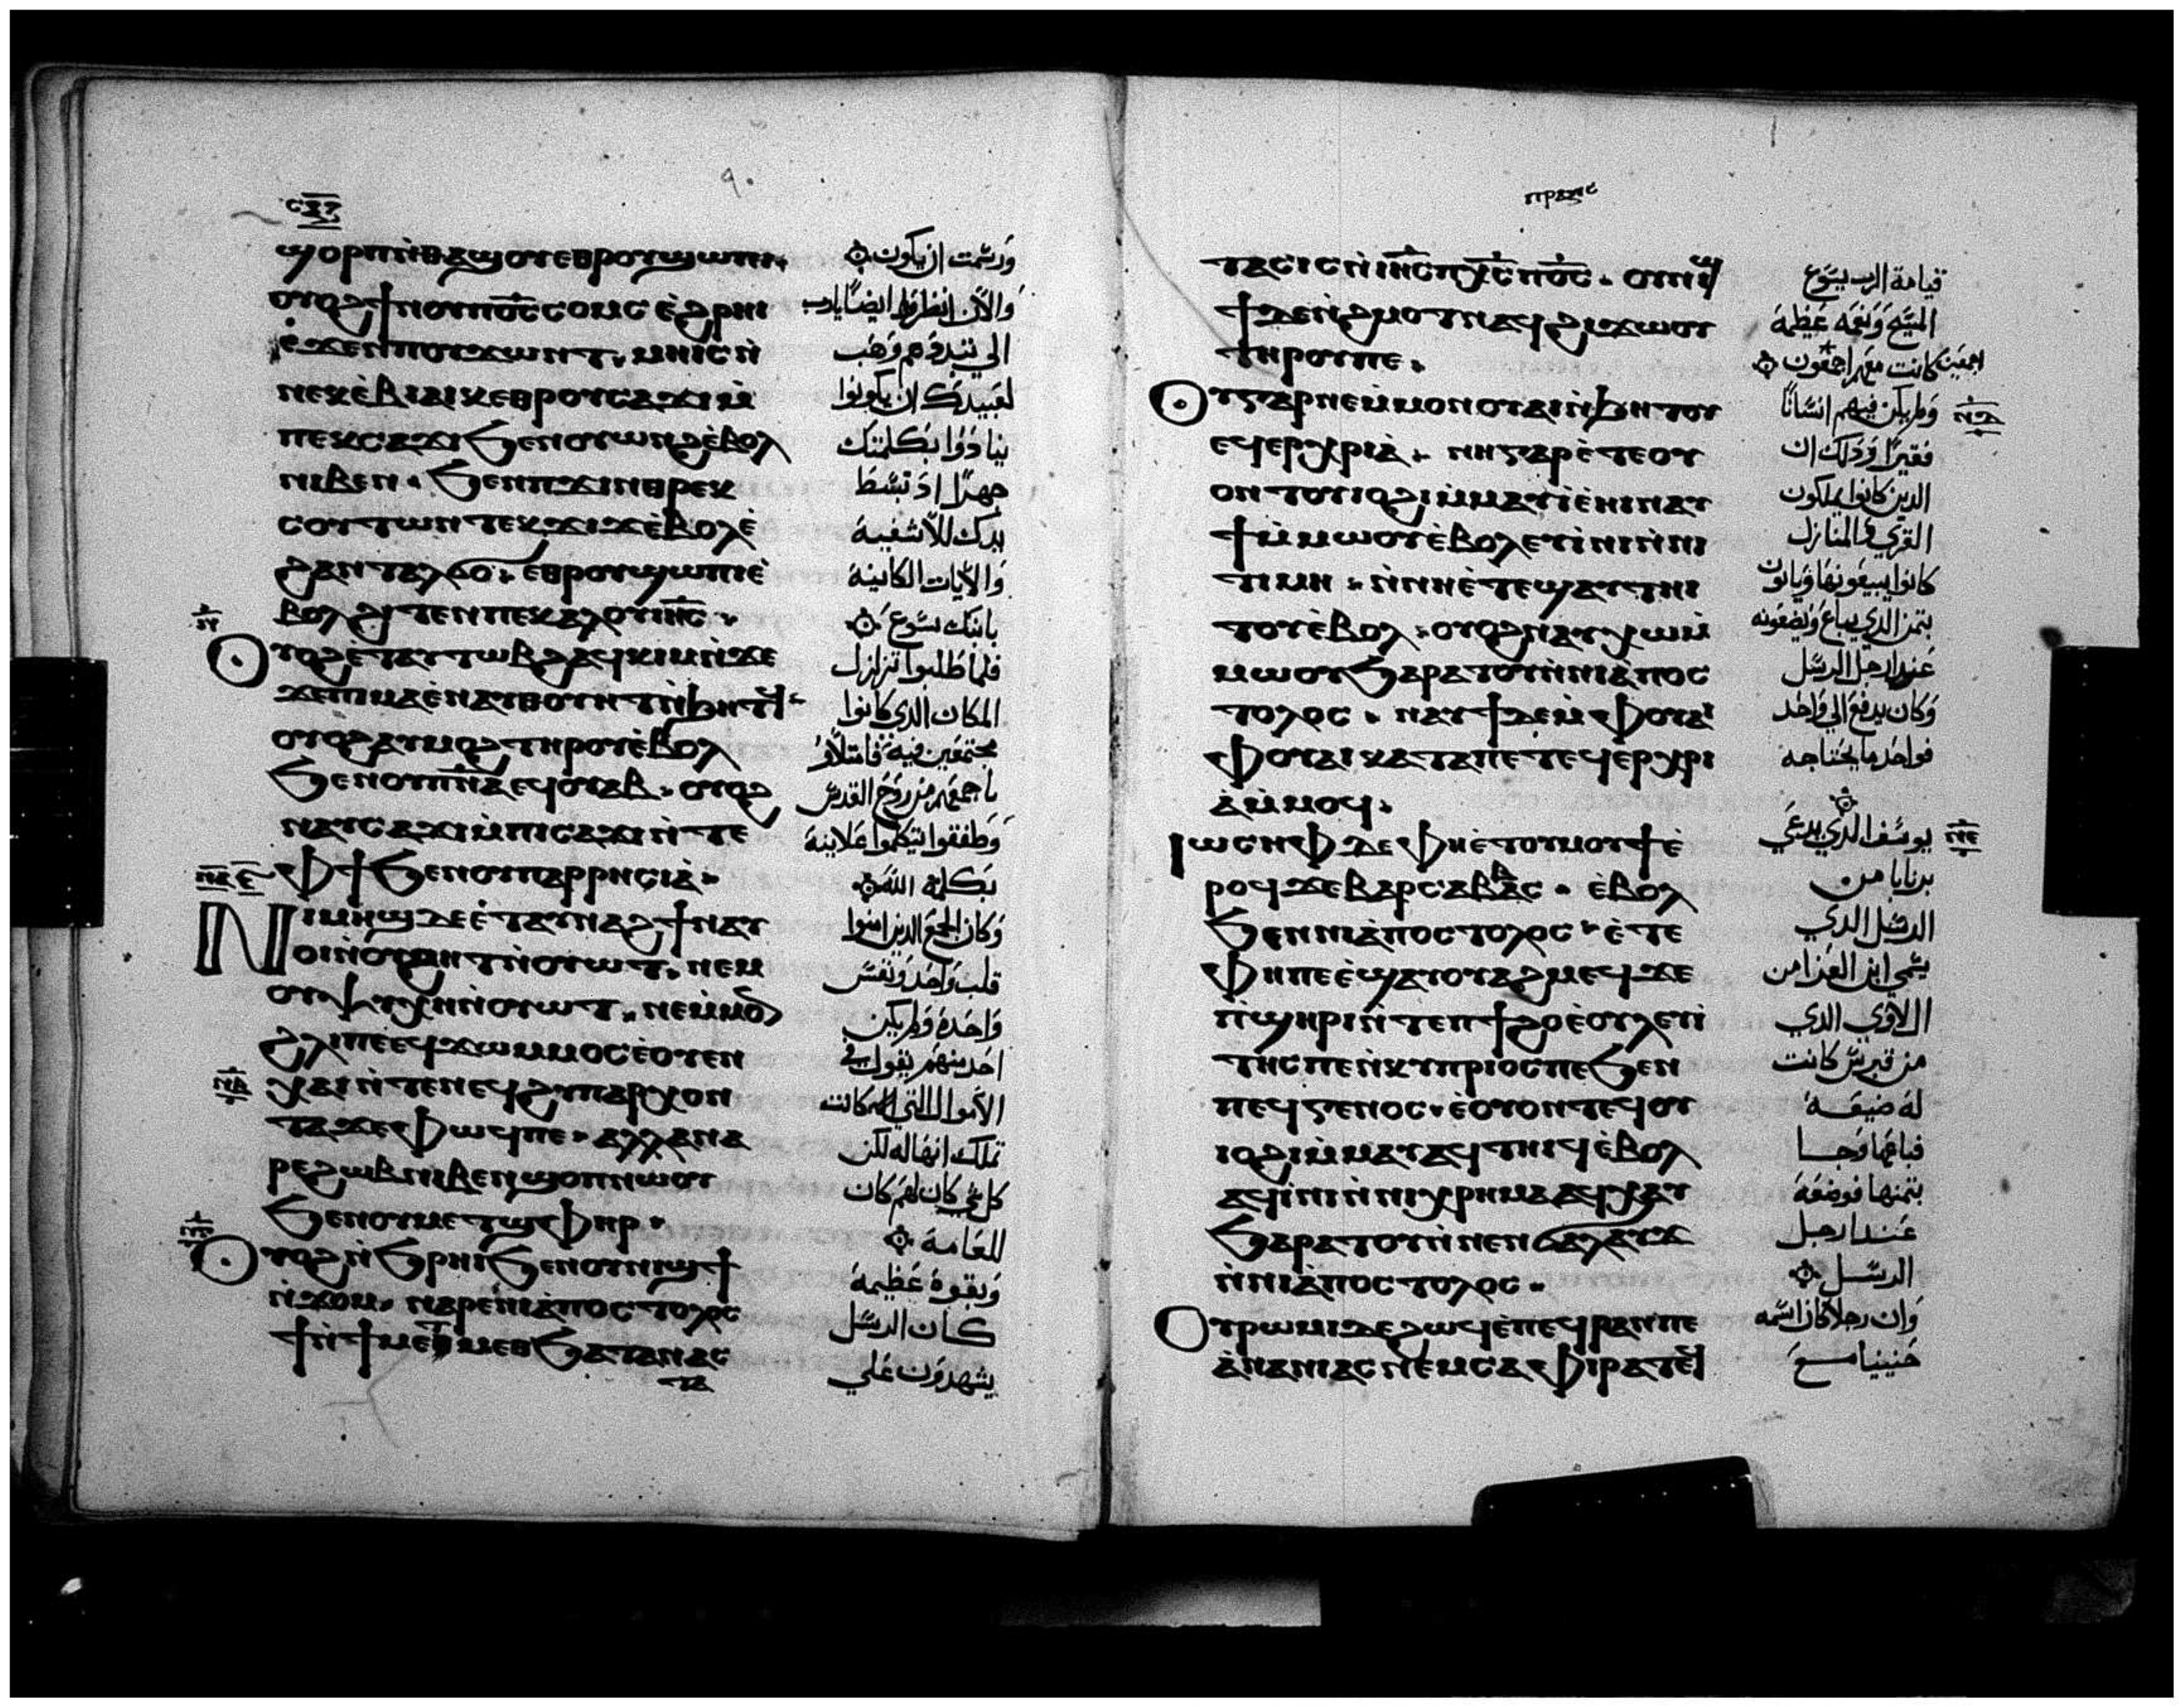 ϣⲟⲣⲡⲛ̀ⲑⲁϣⲟⲩⲉⲑⲣⲟⲩϣⲱⲡⲓ.
ⲟⲩⲟϩϯⲛⲟⲩⲡⲟ̅ⲥ̅ⲥⲟⲙⲥ ⲉ̀ϩⲣⲏⲓ
ⲉ̀ϫⲉⲛⲡⲟⲩϫⲱⲛⲧ. ⲙⲏⲓⲥⲛ̀
ⲛⲉⲕⲉ̀ⲃⲓⲁⲓⲕⲉⲑⲣⲟⲩⲥⲁϫⲓⲙ̀
ⲡⲉⲕⲥⲁϫⲓϧⲉⲛⲟⲩⲱⲛϩⲉ̀ⲃⲟⲗ
ⲛⲓⲃⲉⲛ. ϧⲉⲛⲡϫⲓⲛⲑⲣⲉⲕ
ⲥⲟⲩⲧⲱⲛ ⲧⲉⲕϫⲓϫⲉ̀ⲃⲟⲗⲉ̀
ϩⲁⲛⲧⲁⲗϭⲟ. ⲉⲑⲣⲟⲩϣⲱⲡⲓⲉ̀
ⲃⲟⲗϩⲓⲧⲉⲛⲡⲉⲕⲁⲗⲟⲩⲓⲏ̅ⲥ̅.
ⲟⲩⲟϩⲉ̀ⲧⲁⲩⲧⲱⲃϩⲁϥⲕⲓⲙⲛ̀ϫⲉ
ϫⲉⲡⲓⲙⲁⲉ̀ⲛⲁⲩⲑⲟⲩⲏⲧⲛ̀ϧⲏⲧϥ
ⲟⲩⲟϩⲁⲩⲙⲟϩⲧⲏⲣⲟⲩⲉ̀ⲃⲟⲗ
ϧⲉⲛⲟⲩⲡ̅ⲛ̅ⲁ̅ⲉϥⲟⲩⲁⲃ. ⲟⲩⲟϩ
ⲛⲁⲩⲥⲁϫⲓⲙ̀ⲡⲓⲥⲁϫⲓⲛ̀ⲧⲉ
ⲫϯϧⲉⲛⲟⲩⲡⲁⲣⲣⲏⲥⲓⲁ̀.
ⲛⲓⲙⲏϣⲇⲉⲉ̀ⲧⲁⲩⲛⲁϩϯⲛⲁⲩ
ⲟⲓⲛ̀ⲟⲩϩⲏⲧⲛ̀ⲟⲩⲱⲧ. ⲛⲉⲙ
ⲟⲩⲯⲩⲭⲏⲛ̀ⲟⲩⲱⲧ. ⲛⲉⲙ̀ⲙⲟⲛ
ϩⲗⲓⲡⲉⲉϥϫⲱⲙⲙⲟⲥⲉ̀ⲟⲩⲉⲛ
ⲭⲁⲓⲛ̀ⲧⲉⲛⲉϥϩⲩⲡⲁⲣⲭⲟⲛ
ⲧⲁϫⲉⲫⲱϥⲡⲉ. ⲁⲗⲗⲁⲛⲁ
ⲣⲉϩⲱⲃⲛⲓⲃⲉⲛϣⲟⲡⲛⲱⲟⲩ
ϧⲉⲛⲟⲩⲙⲉⲧϣⲫⲏⲣ.
ⲟⲩⲟϩⲛ̀ϧⲣⲏⲓϧⲉⲛⲟⲩⲛⲓϣϯ
ⲛ̀ϫⲟⲙ. ⲛⲁⲣⲉⲛⲓⲁ̀ⲡⲟⲥⲧⲟⲗⲟⲥ
ϯⲛ̀ϯⲙⲉⲧⲙⲉⲑϧⲁⲧⲁⲛⲁⲥ
ⲧⲁ
ورسمت ان يكون
والان انظر ايضا يارب
الي تهددهم وهب
لعبيدك ان يكونوا
ينادوا بكلمتك
جهرا اذ تبسط
يدك للاشفية
والايات الكاينة
بابنك يسوع
فلما طلبوا تزلزل
المكان الذي كانوا
مجتمعين فيه فامتلاوا
باجمعهم من روح القدس
وطفقوا يتكلموا علانية
بكلمة الله
وكان الجمع الذين امنوا
قلب واحد ونفس
واحدة ولم يكن
احد منهم يقول في
الاموال التي كانت
تملك انها له لكن
كل شي كان لهم كان
للعامة
وبقوة عظيمة
كان الرسل
يشهدون علي
ⲡⲣⲁⲝⲓⲥ
ⲧⲁⲥⲓⲥⲛ̀ⲓⲏ̅ⲥ̅ⲡⲭ̅ⲥ̅ⲡⲟ̅ⲥ̅. ⲟⲩⲛⲓϣ
ϯϫⲉⲛ̀ϩⲙⲟⲧⲛⲁϥϩⲓϫⲱⲟⲩ
ⲧⲏⲣⲟⲩⲡⲉ.
ⲟⲩⲅⲁⲣⲛⲉⲙ̀ⲙⲟⲛⲟⲩⲁⲓⲛ̀ϧⲏⲧⲟⲩ
ⲉϥⲉⲣⲭⲣⲓⲁ̀. ⲛⲏⲅⲁⲣⲉ̀ⲧⲉⲟⲩ
ⲟⲛⲧⲟⲩⲓⲟϩⲓⲙ̀ⲙⲁⲩⲓⲉ̀ⲏⲓⲛⲁⲩ
ϯⲙ̀ⲙⲱⲟⲩⲉ̀ⲃⲟⲗⲉⲩⲓ̀ⲛⲓⲛ̀ⲛⲓ
ⲧⲓⲙⲏ. ⲛ̀ⲛⲏⲉ̀ⲧⲉϣⲁⲩⲧⲏⲓ
ⲧⲟⲩⲉ̀ⲃⲟⲗ. ⲟⲩⲟϩⲛⲁⲩⲭⲱⲙ̀
ⲙⲱⲟⲩϧⲁⲣⲁⲧⲟⲩⲛ̀ⲛⲓⲁ̀ⲡⲟⲥ
ⲧⲟⲗⲟⲥ. ⲛⲁⲩϯⲇⲉⲙ̀ⲫⲟⲩⲁⲓ
ⲫⲟⲩⲁⲓⲕⲁⲧⲁⲡⲉⲧⲉϥⲉⲣⲭⲣⲓ
ⲁ̀ⲙ̀ⲙⲟϥ.
ⲓⲱⲥⲏⲫⲇⲉⲫⲏⲉ̀ⲧⲟⲩⲙⲟⲩϯⲉ̀
ⲣⲟϥϫⲉⲃⲁⲣⲥⲁⲃⲃⲁⲥ. ⲉ̀ⲃⲟⲗ
ϧⲉⲛⲛⲓⲁ̀ⲡⲟⲥⲧⲟⲗⲟⲥ. ⲉ̀ⲧⲉ
ⲫⲏⲡⲉⲉ̀ϣⲁⲩⲟⲩⲁϩⲙⲉϥϫⲉ
ⲡ̀ϣⲏⲣⲓⲛ̀ⲧⲉⲡϯϩⲟⲉ̀ⲟⲩⲗⲉⲩⲓ̀
ⲧⲏⲥⲡⲉⲛ̀ⲕⲩⲡⲣⲓⲟⲥⲡⲉϧⲉⲛ
ⲡⲉϥⲅⲉⲛⲟⲥ. ⲉ̀ⲟⲩⲟⲛⲧⲉϥⲟⲩ
ⲓⲟϩⲓⲙ̀ⲙⲁⲩⲁϥⲧⲏⲓϥⲉ̀ⲃⲟⲗ
ⲁϥⲓ̀ⲛⲓⲛ̀ⲛⲓⲭⲣⲏⲙⲁⲁϥⲭⲁⲩ
ϧⲁⲣⲁⲧⲟⲩⲛ̀ⲛⲉⲛϭⲁⲗⲁⲩϫ
ⲛ̀ⲛⲓⲁ̀ⲡⲟⲥⲧⲟⲗⲟⲥ.
ⲟⲩⲣⲱⲙⲓⲇⲉϩⲱϥⲉ̀ⲡⲉϥⲣⲁⲛⲡⲉ
ⲁ̀ⲛⲁⲛⲓⲁⲥⲛⲉⲙⲥⲁⲫⲓⲣⲁⲧⲉϥ
قيامة الرب يسوع
المسيح ونعمة عظيمة
كانت معهم اجمعين
ولم يكن فيهم انسانا
فقيرا وذلك ان
الذين كانوا يملكون
القري والمنازل
كانوا يبيعونها وياتون
بثمن الذي يباع ويضعونه
عند ارجل الرسل
وكان يدفع الي واحد
فواحد ما يحتاجه
يوسف الذي يدعي
برنابا من
الرسل الذي
يسمي ابن العزا من
اللاوي الذي
من قبرس كانت
له ضيعة
فباعها وجا
بثمنها فوضعه
عند ارجل
الرسل
وان رجلا كان اسمه
حنينيا مع